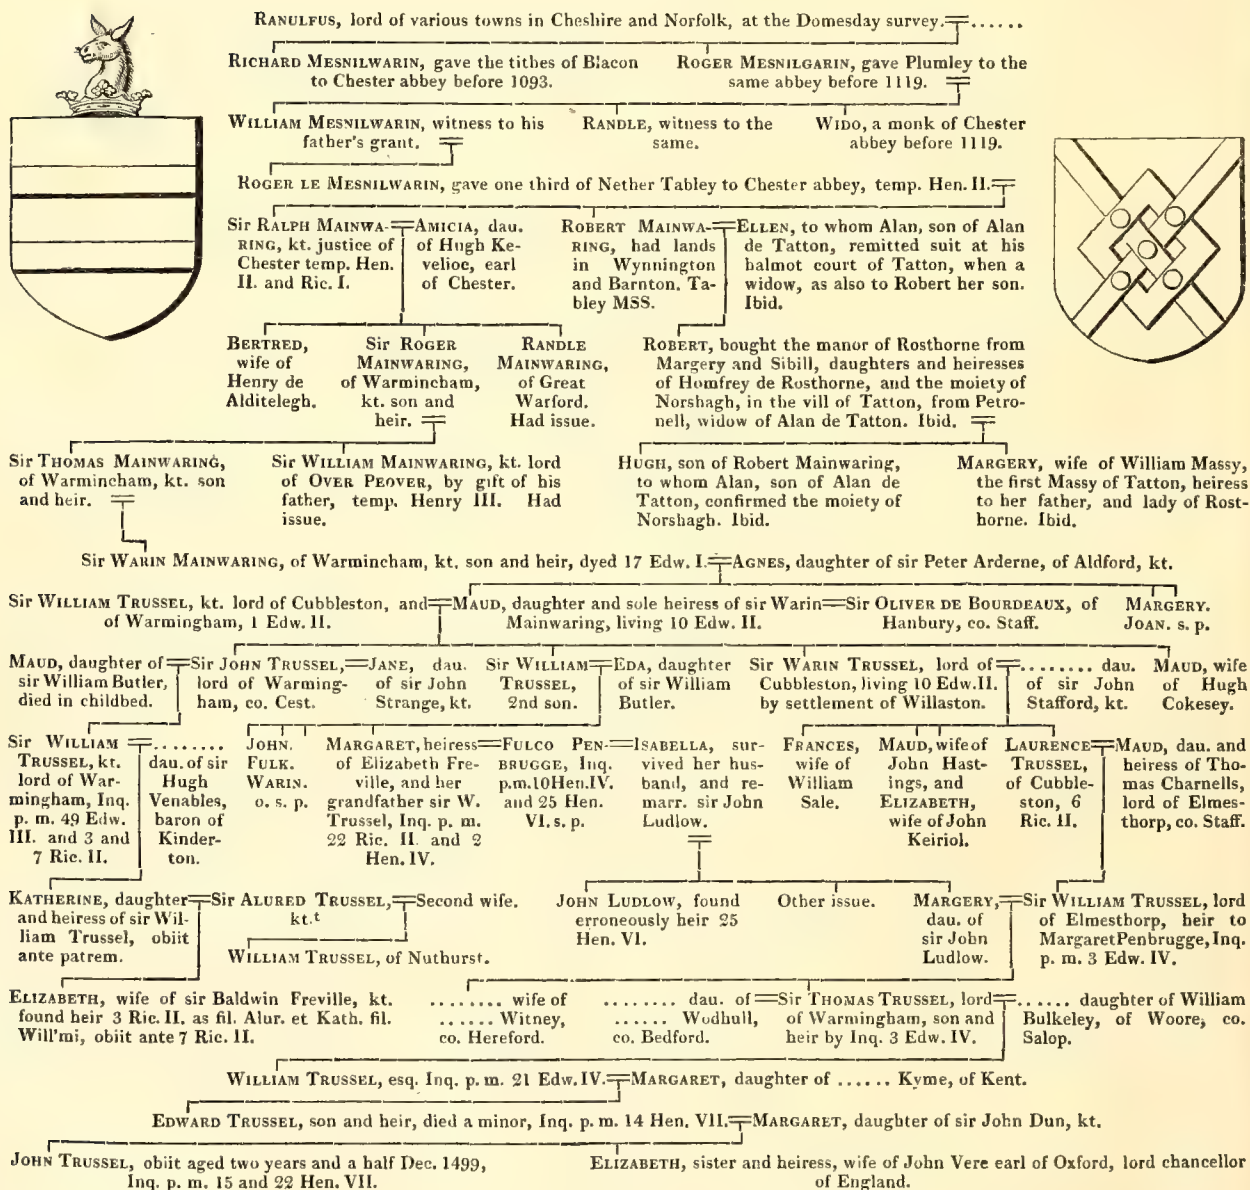 RANULFUS, lord of various towns in Cheshire and Norfolk, at the Domesday survey. ......
RICHARD MESNILWARIN, gave the tithes of Blacon
to Chester abbey before 1093.
ROGER MESNILGARIN, gave Plumley to the
same abbey before 1119.
WILLIAM MESNILWARIN, witness to his
father's grant.
RANDLE, witness to the
same.
WIDO, a monk of Chester
abbey before 1119.
ROGER LE MESNILWARIN, gave one third of Nether Tabley to Chester abbey, temp. Hen. II.
Sir RALPH MAINWA-
RING, kt. justice of
Chester temp. Hen.
II. and Ric. I.
AMICIA, dau.
of Hugh Ke-
velioc, earl
of Chester.
ROBERT MAINWA-
RING, had lands
in Wynnington
and Barnton. Ta-
bley MSS.
ELLEN, to whom Alan, son of Alan
de Tatton, remitted suit at his
halmot court of Tatton, when a
widow, as also to Robert her son.
Ibid.
BERTRED,
wife of
Henry de
Alditelegh.
Sir ROGER
MAINWARING,
of Warmincham,
kt. son and
heir.
RANDLE
MAINWARING,
of Great
Warford.
Had issue.
ROBERT, bought the manor of Rosthorne from
Margery and Sibill, daughters and heiresses
of Homfrey de Rosthorne, and the moiety of
Norshagh, in the vill of Tatton, from Petro-
nell, widow of Alan de Tatton. Ibid.
Sir THOMAS MAINWARING,
of Warmincham, kt. son
and heir.
Sir WILLIAM MAINWARING, kt. lord
of OVER PEOVER, by gift of his
father, temp. Henry III. Had
issue.
HUGH, son of Robert Mainwaring,
to whom Alan, son of Alan de
Tatton, confirmed the moiety of
Norshagh. Ibid.
MARGERY, wife of William Massy,
the first Massy of Tatton, heiress
to her father, and lady of Rost-
horne. Ibid.
Sir WARIN MAINWARING, of Warmincham, kt. son and heir, dyed 17 Edw. I. AGNES, daughter of sir Peter Arderne, of Aldford, kt.
Sir WILLIAM TRUSSEL, kt. lord of Cubbleston, and
of Warmingham, 1 Edw. II.
MAUD, daughter and sole heiress of sir Warin
Mainwaring, living 10 Edw. II.
Sir OLIVER DE BOURDEAUX, of
Hanbury, co. Staff.
MARGERY.
JOAN. s. p.
MAUD, daughter of
sir William Butler,
died in childbed.
Sir JOHN TRUSSEL,
lord of Warming-
ham, co. Cest.
JANE, dau.
of sir John
Strange, kt.
Sir WILLIAM
TRUSSEL,
2nd son.
EDA, daughter
of sir William
Butler.
Sir WARIN TRUSSEL, lord of
Cubbleston, living 10 Edw.II.
by settlement of Willaston.
........ dau.
of sir John
Stafford, kt.
MAUD, wife
of Hugh
Cokesey.
Sir WILLIAM
TRUSSEL, kt.
lord of War-
mingham, Inq.
p. m. 49 Edw.
III. and 3 and
7 Ric. II.
........
dau. of sir
Hugh
Venables,
baron of
Kinder-
ton.
JOHN.
FULK.
WARIN.
o. s. p.
MARGARET, heiress
of Elizabeth Fre-
ville, and her
grandfather sir W.
Trussel, Inq. p. m.
22 Ric. II. and 2
Hen. IV.
FULCO PEN-
BRUGGE, Inq.
p.m. 10 Hen.IV.
and 25 Hen.
VI. s. p.
ISABELLA, sur-
vived her hus-
band, and re-
marr. sir John
Ludlow.
FRANCES,
wife of
William
Sale.
MAUD, wife of
John Hast-
ings, and
ELIZABETH,
wife of John
Keiriol.
LAURENCE
TRUSSEL,
of Cubble-
ston, 6
Ric. II.
MAUD, dau. and
heiress of Tho-
mas Charnells,
lord of Elmes-
thorp, co. Staff.
KATHERINE, daughter
and heiress of sir Wil-
liam Trussel, obiit
ante patrem.
Sir ALURED TRUSSEL,
kt.t
Second wife.
WILLIAM TRUSSEL, of Nuthurst.
JOHN LUDLOW, found
erroneously heir 25
Hen. VI.
Other issue.
MARGERY,
dau. of
sir John
Ludlow.
Sir WILLIAM TRUSSEL, lord
of Elmesthorp, heir to
Margaret Penbrugge, Inq.
p. m. 3 Edw. IV.
ELIZABETH, wife of sir Baldwin Freville, kt.
found heir 3 Ric. II. as fil. Alur. et Kath. fil.
Will'mi, obiit ante 7 Ric. II.
........ wife of
...... Witney,
co. Hereford.
........ dau. of
...... Wodhull,
co. Bedford.
Sir THOMAS TRUSSEL, lord
of Warmingham, son and
heir by Inq. 3 Edw. IV.
...... daughter of William
Bulkeley, of Woore, co.
Salop.
WILLIAM TRUSSEL, esq. Inq. p. m. 21 Edw. IV. MARGARET, daughter of ...... Kyme, of Kent.
EDWARD TRUSSEL, son and heir, died a minor, Inq. p. m. 14 Hen. VII. MARGARET, daughter of sir John Dun, kt.
JOHN TRUSSEL, obiit aged two years and a half Dec. 1499,
Inq. p. m. 15 and 22 Hen. VII.
ELIZABETH, sister and heiress, wife of John Vere earl of Oxford, lord chancellor
of England.